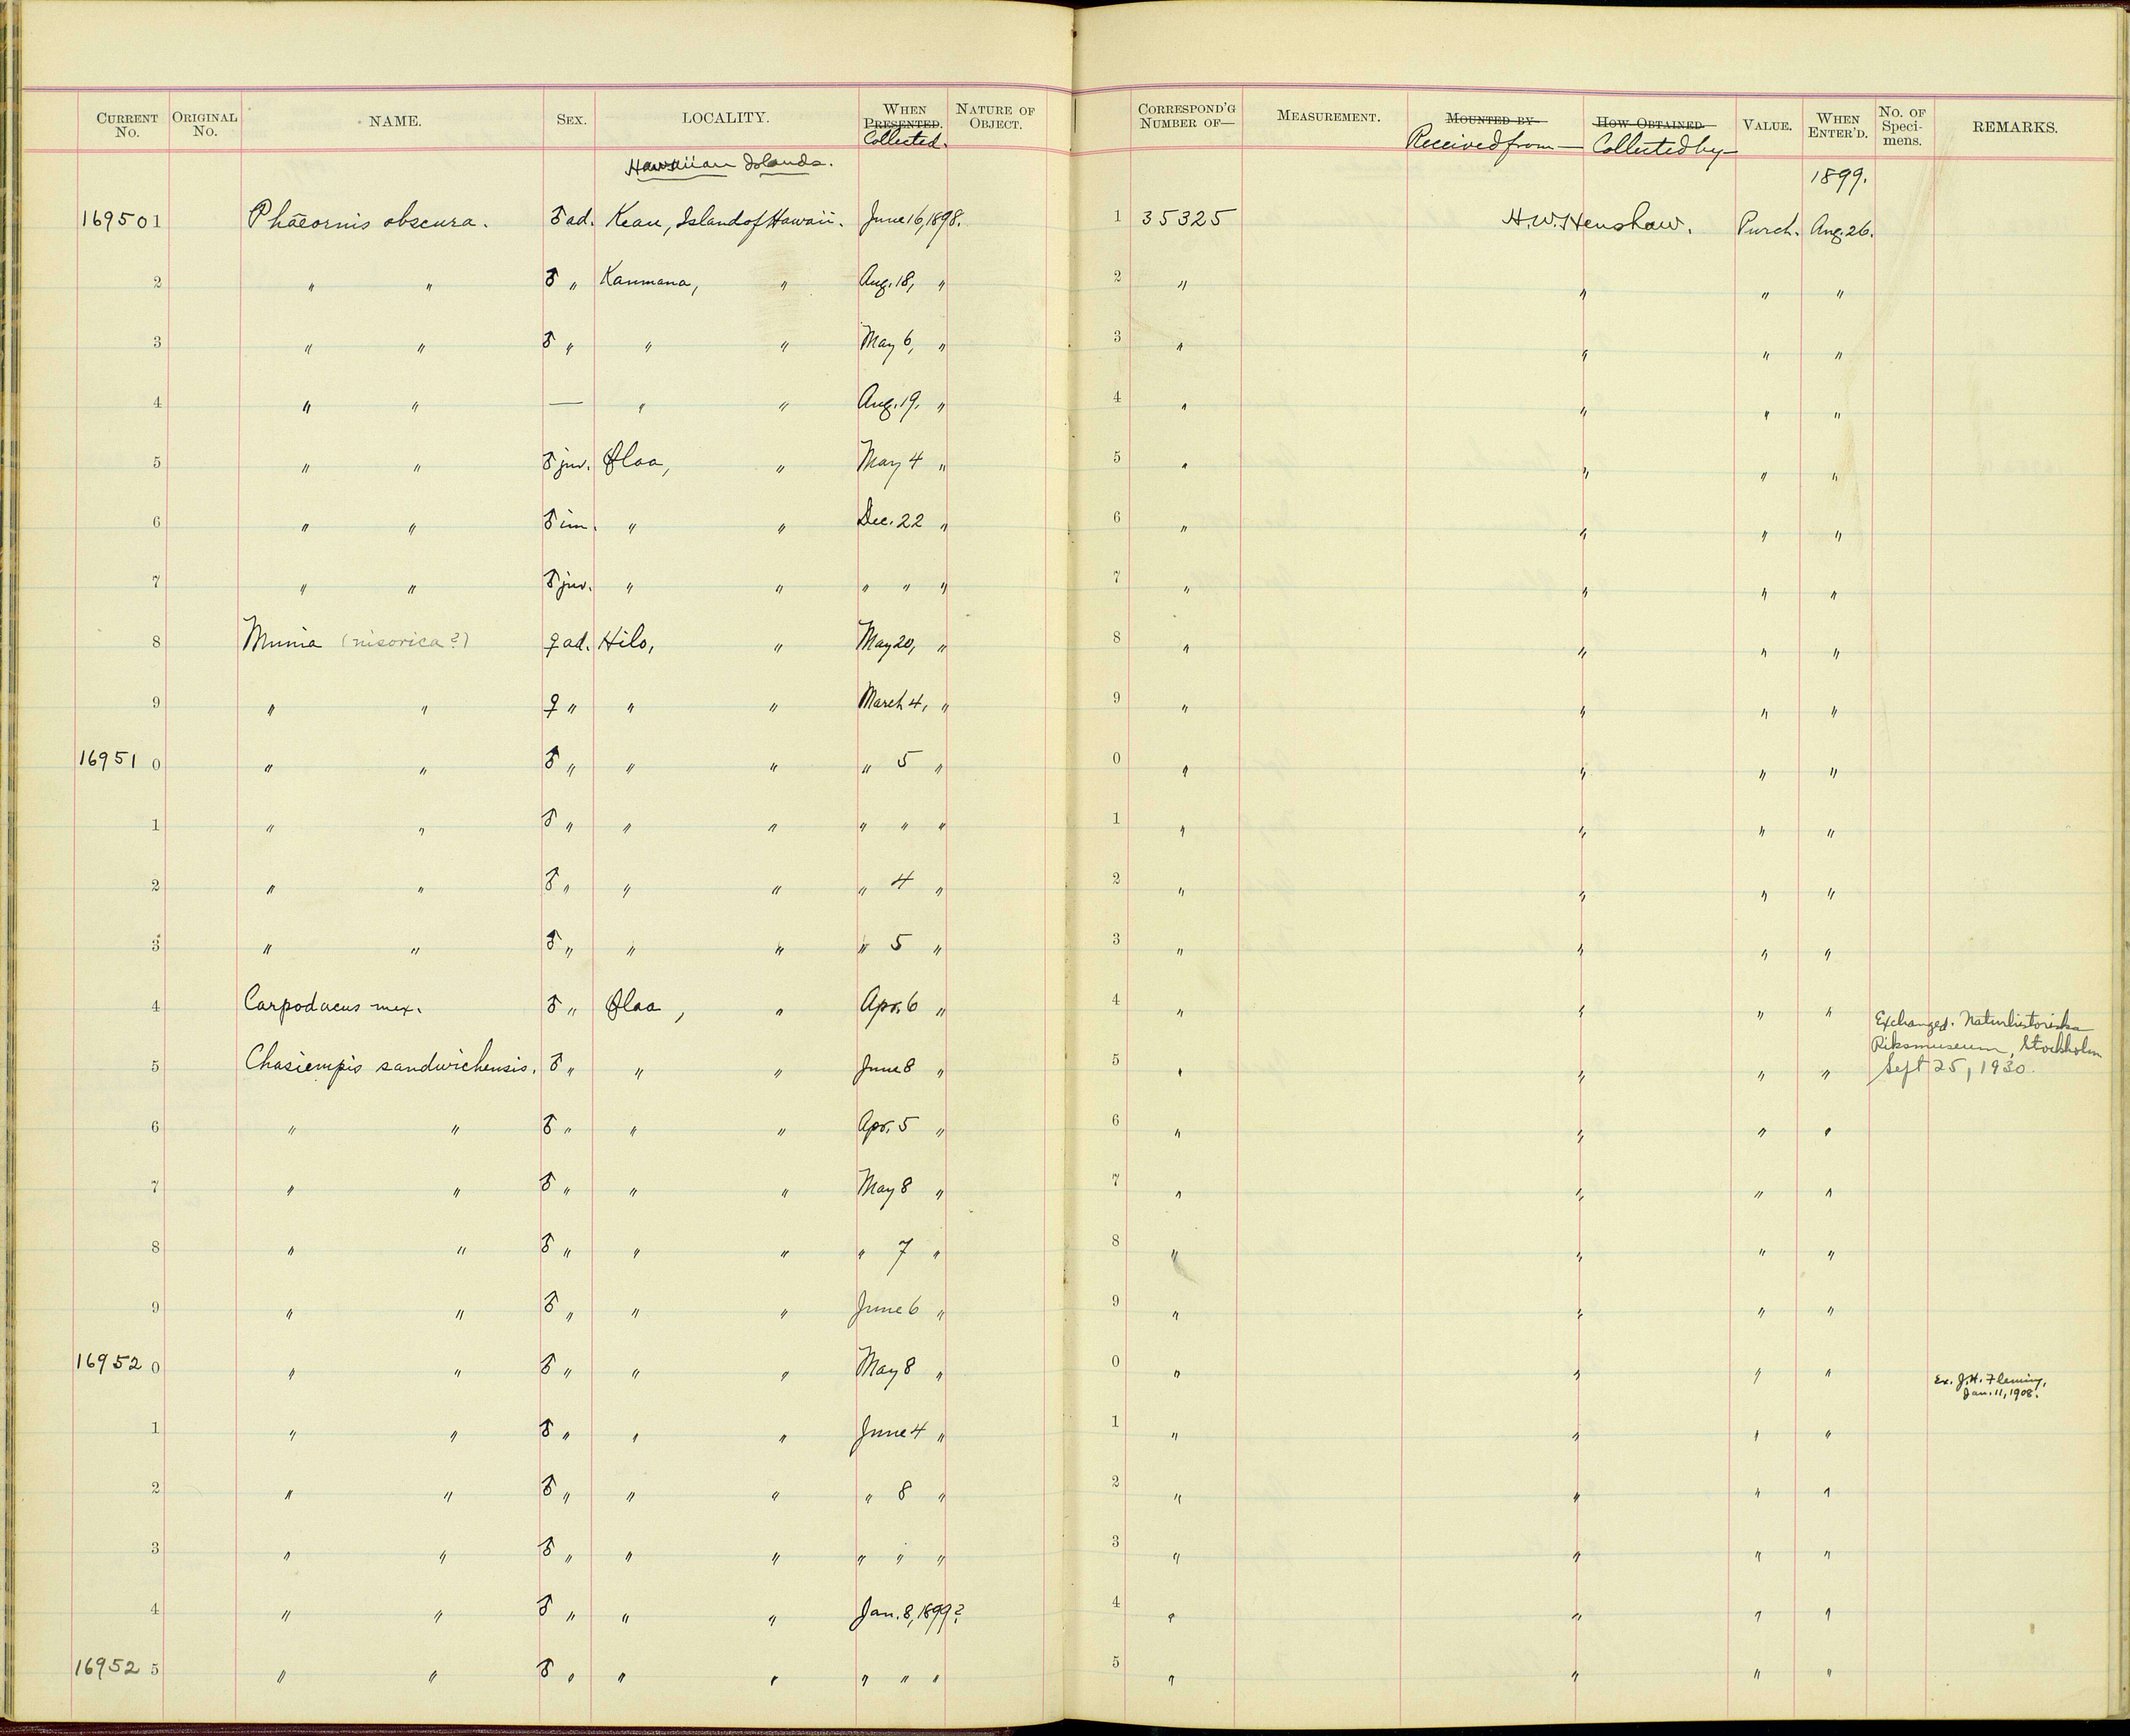 CURRENT No. ORIGINAL No. NAME. SEX. LOCALITY. WHEN PRESENTED. Collected. NATURE OF OBJECT. CORRESPOND'G NUMBER OF— MEASUREMENT. MOUNTED BY- Received from — HOW OBTAINED Collected by — VALUE. WHEN ENTER'D. No. OF Specimens. REMARKS.
Hawaiian Islands. 1899.
169501 Phæornis obscura. ♂ ad. Keau, Island of Hawaii. June 16, 1898. 1 35325 H.W. Henshaw. Purch. Aug. 26.
2 " " ♂ " Kaumana, " Aug. 18, " 2 " " " "
3 " " ♂ " " " May 6, " 3 " " " "
4 " " — " " Aug. 19, " 4 " " " "
5 " " ♂ juv. Olaa, " May 4 " 5 " " " "
6 " " ♂ im. " " Dec. 22 " 6 " " " "
7 " " ♂ juv. " " " " " 7 " " " "
8 Munia (nisorica?) ♀ ad. Hilo, " May 20, " 8 " " " "
9 " " ♀ " " " March 4, " 9 " " " "
16951 0 " " ♂ " " " " 5 " 0 " " " "
1 " " ♂ " " " " " " 1 " " " "
2 " " ♂ " " " " 4 " 2 " " " "
3 " " ♂ " " " " 5 " 3 " " " "
4 Carpodacus mex. ♂ " Olaa, " Apr. 6 " 4 " " " " Exchanged. Naturhistoriska
Riksmuseum, Stockholm
5 Chasiempis sandwichensis. ♂ " " " June 8 " 5 " " " " Sept 25, 1930.
6 " " ♂ " " " Apr. 5 " 6 " " " "
7 " " ♂ " " " May 8 " 7 " " " "
8 " " ♂ " " " " 7 " 8 " " " "
9 " " ♂ " " " June 6 " 9 " " " "
16952 0 " " ♂ " " " May 8 " 0 " " " " Ex. J.H. Fleming,
Jan. 11, 1908.
1 " " ♂ " " " June 4 " 1 " " " "
2 " " ♂ " " " " 8 " 2 " " " "
3 " " ♂ " " " " " " 3 " " " "
4 " " ♂ " " " Jan. 8, 1899? 4 " " " "
16952 5 " " ♂ " " " " " " 5 " " " "